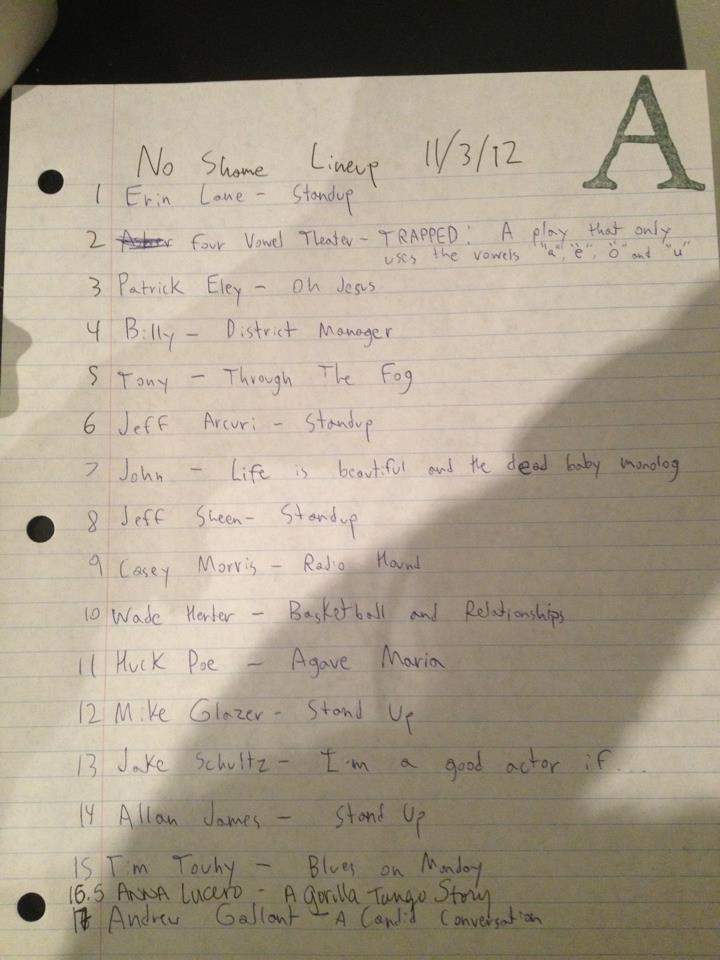 A
No Shame Lineup 11/3/12
1 Erin Lane - Standup
2 Four Vowel Theater - TRAPPED: A play that only
uses the vowels "a", "e", "o" and "u"
3 Patrick Eley - Oh Jesus
4 Billy - District Manager
5 Tony - Through The Fog
6 Jeff Arcuri - Standup
7 John - Life is beautiful and the dead baby monolog
8 Jeff Sheen - Standup
9 Casey Morris - Radio Hound
10 Wade Herter - Basketball and Relationships
11 Huck Poe - Agave Maria
12 Mike Glazer - Stand Up
13 Jake Schultz - I'm a good actor if...
14 Allan James - Stand Up
15 Tim Touhy - Blues on Monday
15.5 ANNA LUCERO - A Gorilla Tango Story
Andrew Gallant - A Candid Conversation